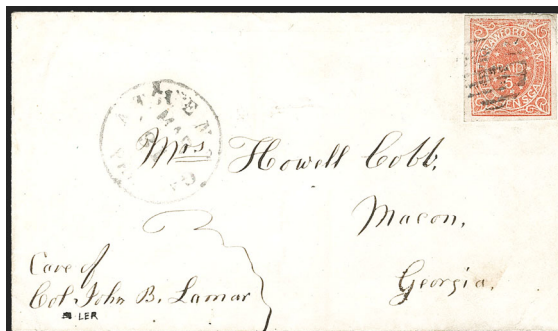 PAID
5
ATHENS
GA
Mrs Howell Cobb.
Macon,
Georgia.
Care of
Col. John B. Lamar
LER